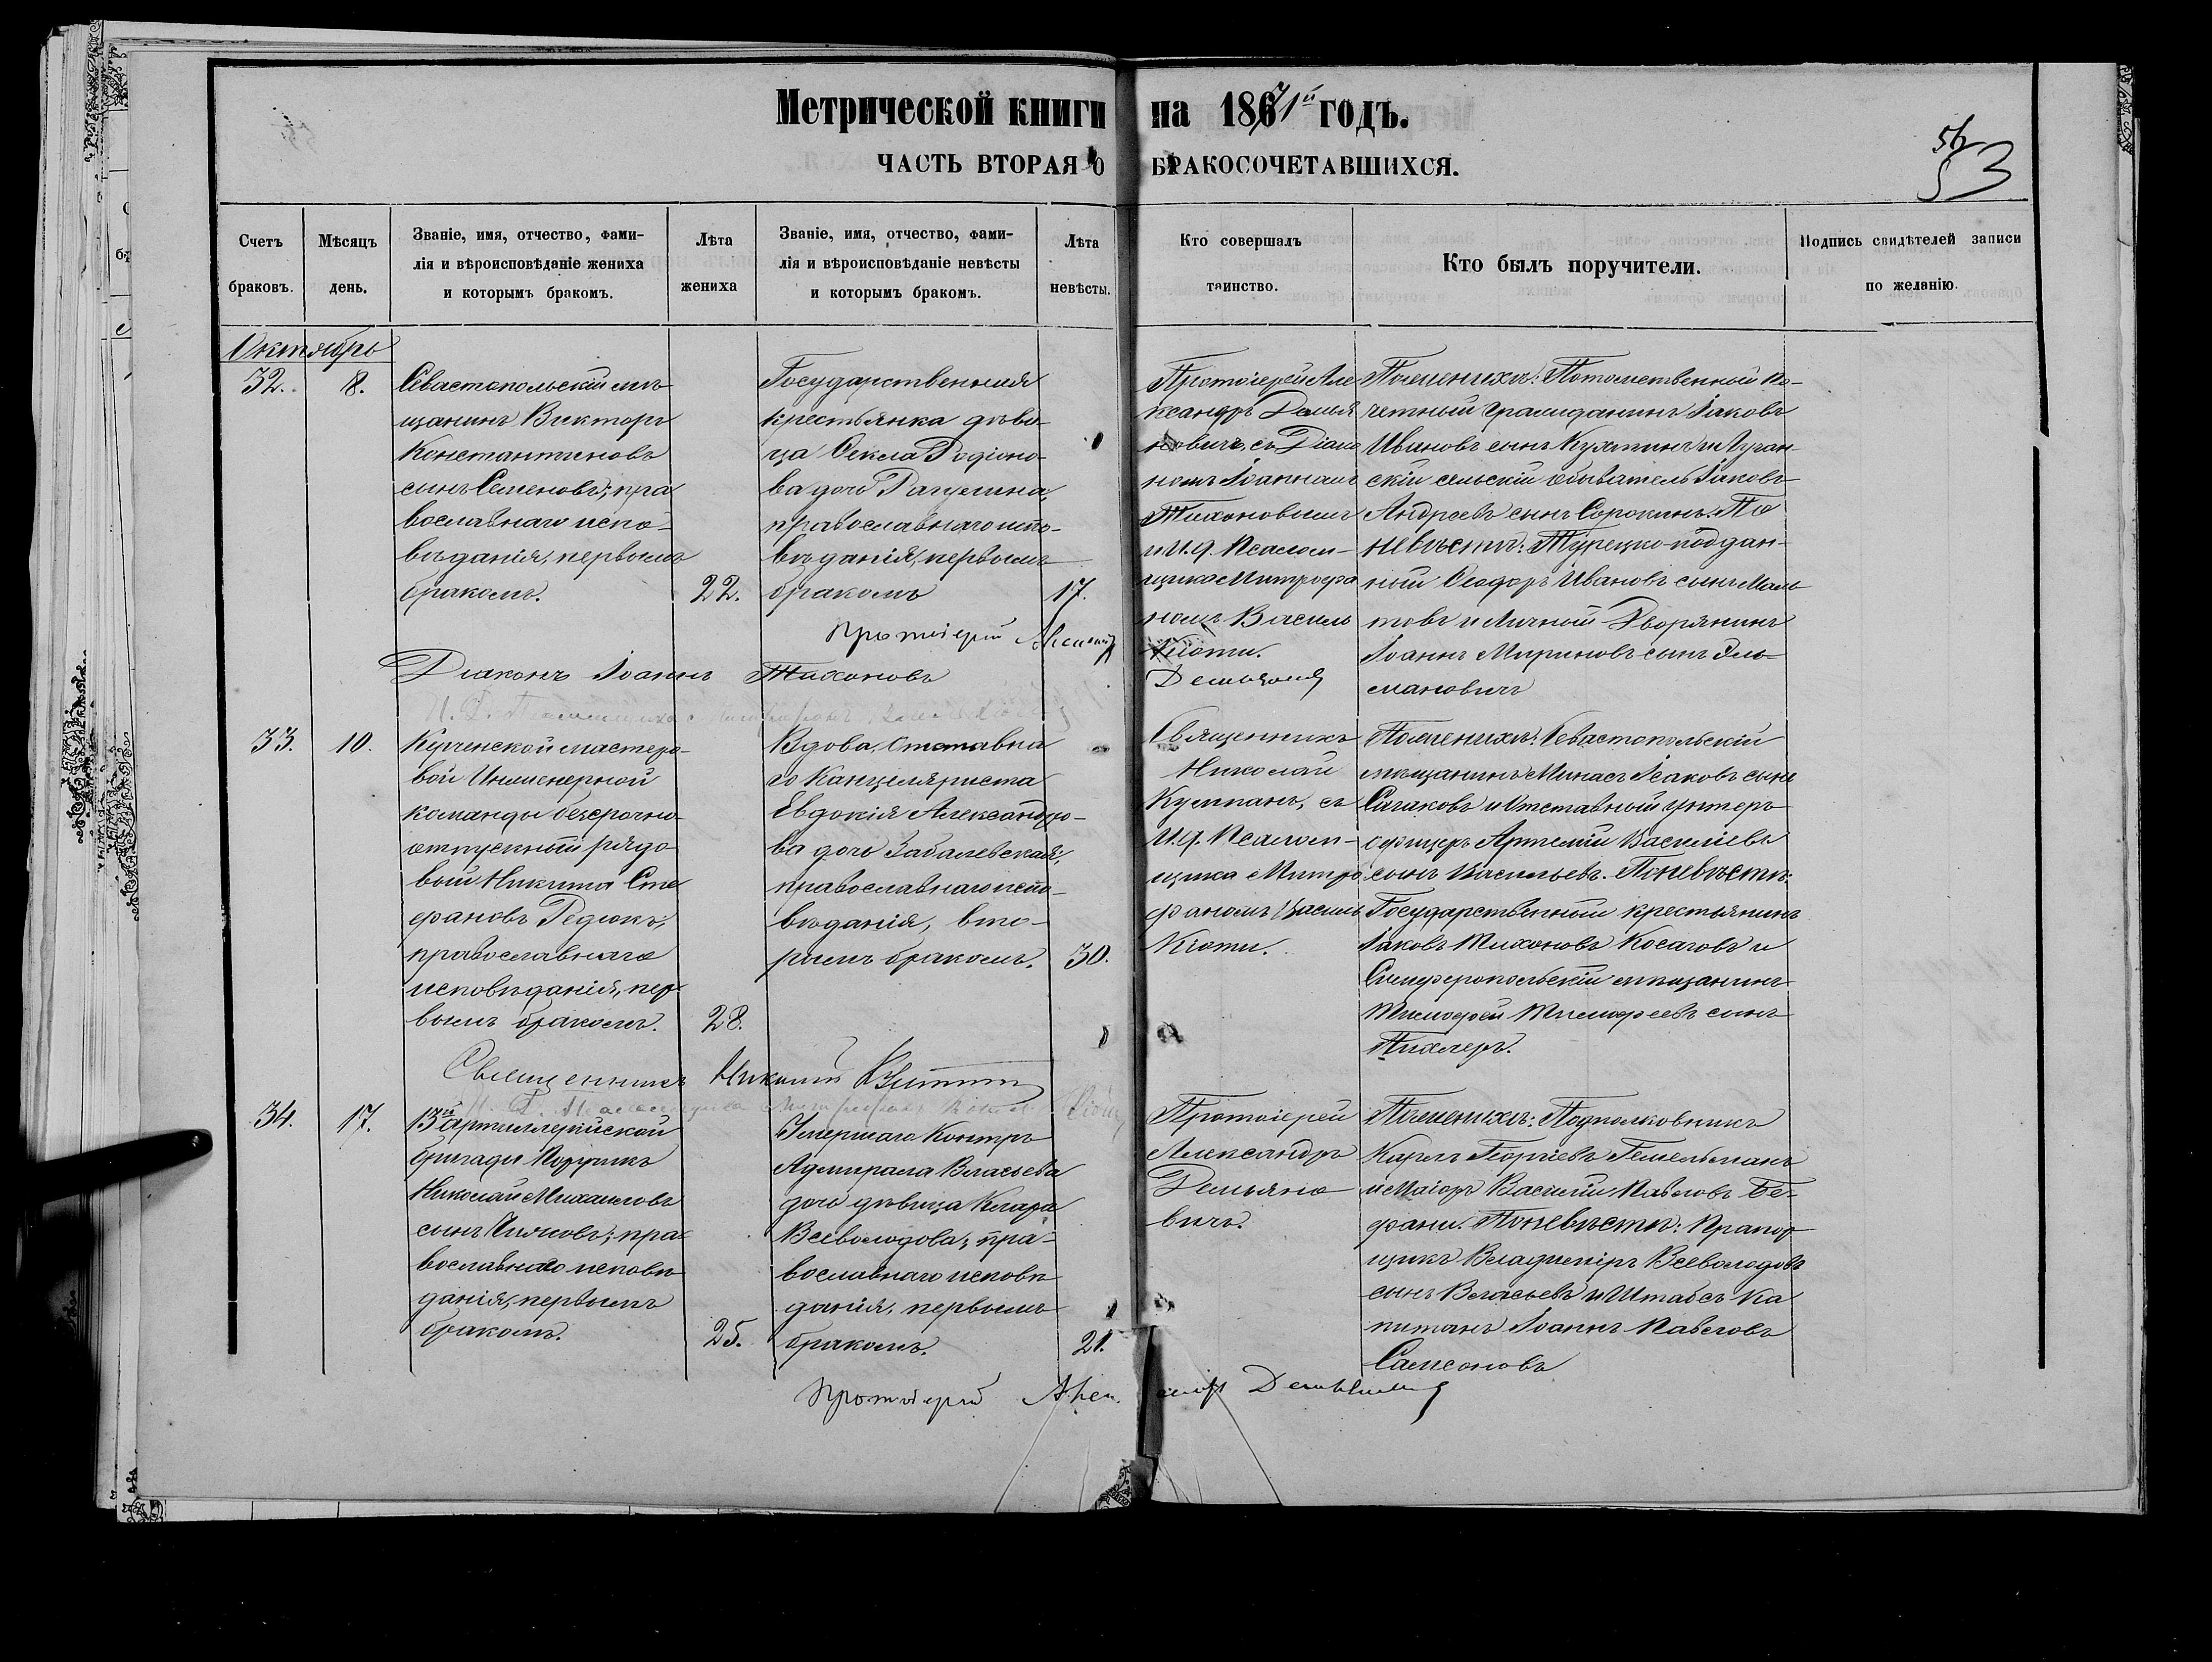 Метрической книги на 1871й годъ.
ЧАСТЬ ВТОРАЯ О БРАКОСОЧЕТАВШИХСЯ.
56
53
Счетъ браковъ.
Мѣсяцъ день.
Званіе, имя, отчество, фами-
лія и вѣроисповѣданіе жениха
и которымъ бракомъ.
Лѣта жениха
Званіе, имя, отчество, фами-
лія и вѣроисповѣданіе невѣсты
и которымъ бракомъ.
Лѣта невѣсты.
Кто совершалъ таинство.
Кто былъ поручители.
Подпись свидѣтелей записи
по желанію.
Октябрь
32.
8.
Севастопольскій мѣ-
щанинъ Викторъ
Константиновъ
сынъ Семеновъ; пра
вославнаго испо-
вѣданія, первымъ
бракомъ.
22.
Государственная
крестьянка дѣви-
ца Ѳекла Родіоно-
ва дочь
православнаго испо-
вѣданія, первымъ
бракомъ
17.
Протоіерей Але
ксандръ Демья
новичъ, съ Діако
номъ Іоанномъ
Тихоновымъ
и И. д. Псалом-
щика Митрофа
номъ Василь
Кіоти.
По женихѣ: Потомственный по-
четный гражданинъ Іаковъ
Ивановъ сынъ и Луган-
скій сельскій обыватель Іаковъ
Андреевъ сынъ Сорокинъ. По
невѣстѣ: Турецко-поддан-
ный Ѳеодоръ Ивановъ сынъ Маль
товъ и Личной Дворянинъ
Іоаннъ Мариновъ сынъ Эль-
мановичъ
Протоіерей
Діаконъ Іоаннъ Тихоновъ
33.
10.
Керченской мастеро-
вой Инженерной
команды безсрочно-
отпускный рядо
вый Никита Сте
фановъ Редюкъ;
православнаго
исповѣданія, пер
вымъ бракомъ.
28.
Вдова, Отставна
го Канцеляриста
Евдокія Александро-
ва дочь Забалевская;
православнаго испо-
вѣданія, вто-
рымъ бракомъ.
30.
Священникъ
Николай
съ
И. д. Псалом-
щика Митро
фаномъ Василь
Кіоти.
По женихѣ: Севастопольскій
мѣщанинъ Минасъ Исаковъ сынъ
Сагаковъ и Отставный унтеръ
офицеръ Артемій Василіевъ
сынъ Васильевъ. По невѣстѣ:
Государственный крестьянинъ
Іаковъ Тихоновъ Косаговъ и
Симферопольскій мѣщанинъ
Тимофей Тимофеевъ сынъ
Пихлеръ.
Священникъ Николай
34.
17.
13й артиллерійской
бригады Поручикъ
Николай Михаиловъ
сынъ пра-
вославнаго исповѣ
данія, первымъ
бракомъ.
25.
Умершаго Контръ
Адмирала Власьева
дочь дѣвица Клара
Всеволодова; пра-
вославнаго исповѣ
данія, первымъ
бракомъ.
21.
Протоіерей
Александръ
Демьяно
вичъ.
По женихѣ: Подполковникъ
Карлъ Георгіевъ Гешельманъ
и Маіоръ Василій Павловъ Бе-
фани. По невѣстѣ: Прапор
щикъ Владиміръ Всеволодовъ
сынъ Власьевъ и Штабсъ Ка
питанъ Іоаннъ Павловъ
Самсоновъ
Протоіерей